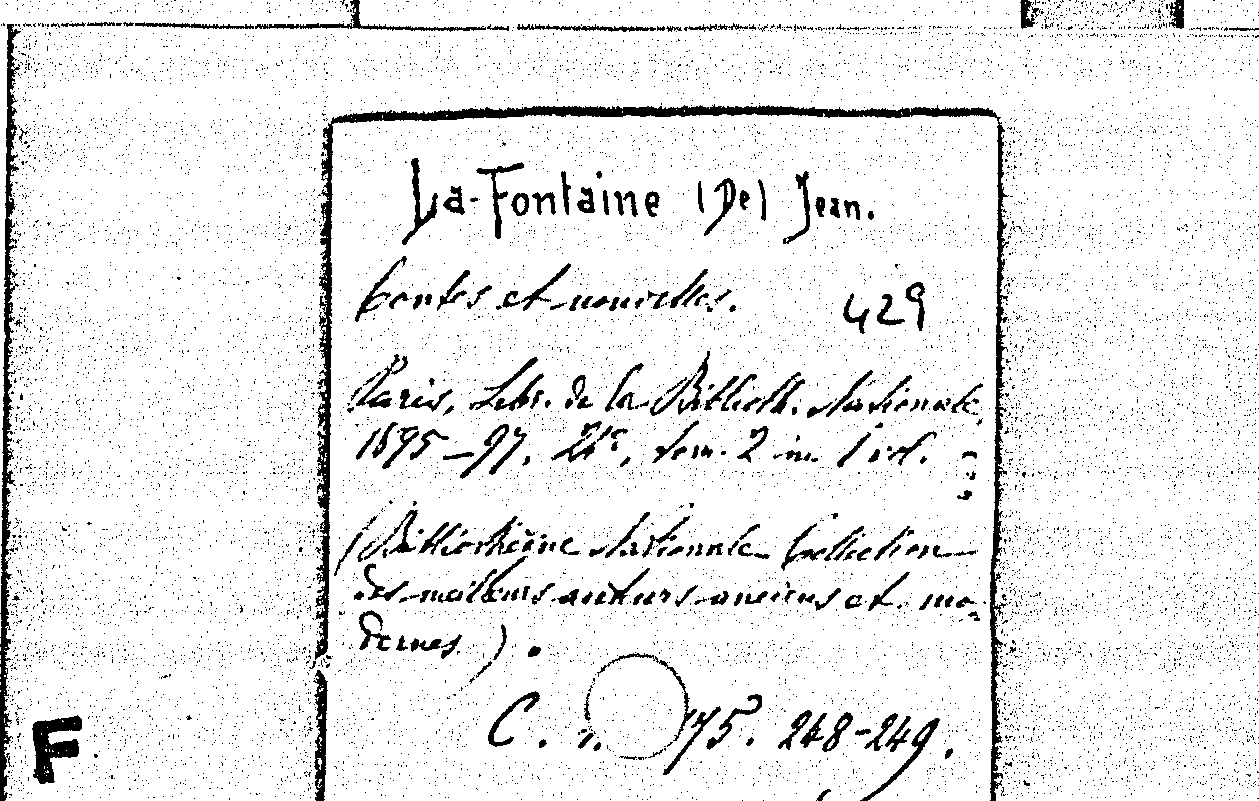 La-Fontaine (De) Jean.
Contes et nouvelles.
429
Paris, Libr. de la Biblioth. Nationale,
1895-97. 24°, tom. 2 in 1 vol.
(Bibliothèque Nationale Collection
des meilleurs auteurs anciens et mo-
dernes).
C. 175. 248-249.
F